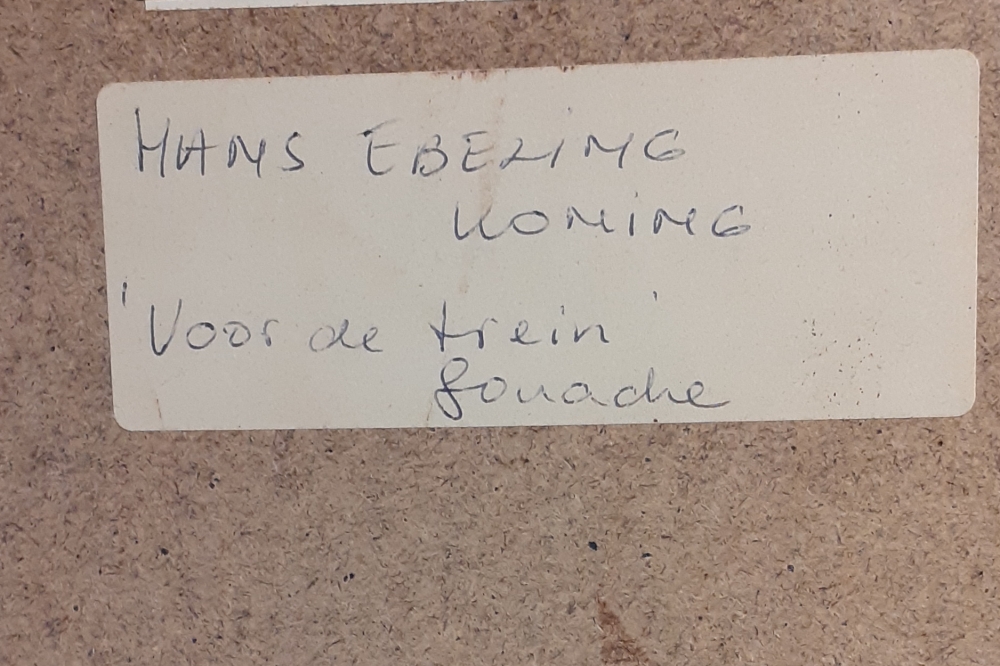 HANS EBELING
KONING
'Voor de trein'
gouache